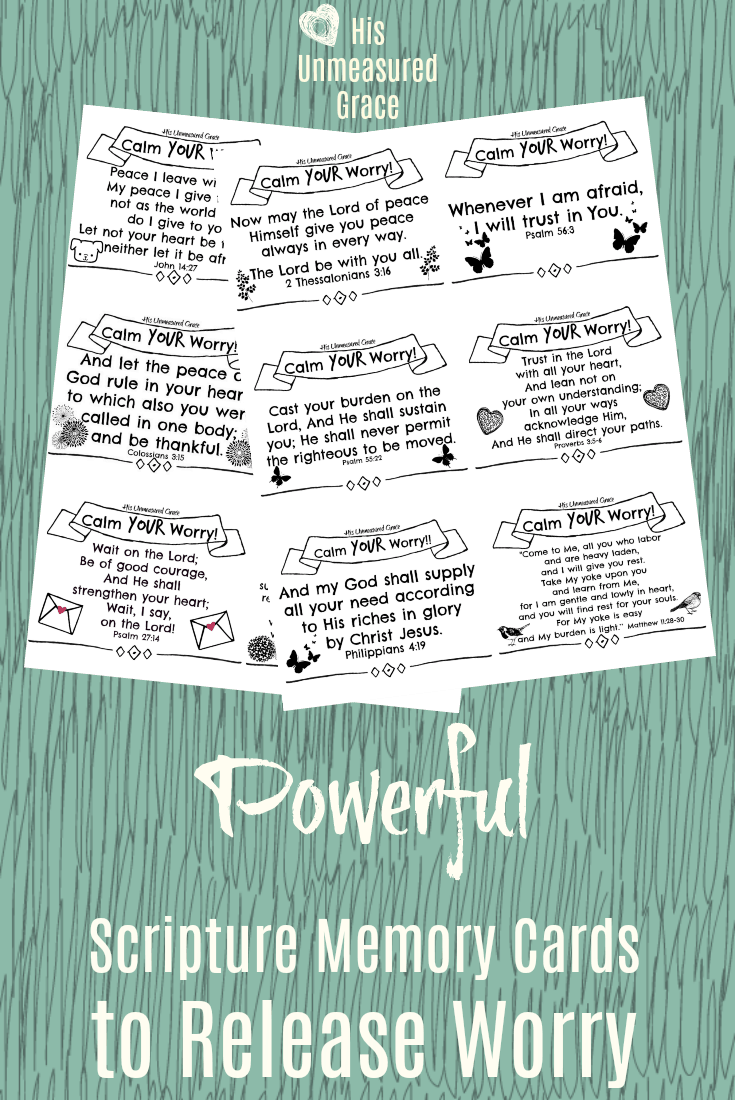 His
Unmeasured
Grace
His Unmeasured Grace
Calm YOUR
Peace I leave wi
My peace I give
not as the world
do I give to yo
Let not your heart be
neither let it be afr
John 14:27
His Unmeasured Grace
Calm YOUR Worry!
And let the peace
God rule in your hear
to which also you wer
called in one body;
and be thankful.
Colossians 3:15
His Unmeasured Grace
Calm YOUR Worry!
Wait on the Lord;
Be of good courage,
And He shall
strengthen your heart;
Wait, I say,
on the Lord!
Psalm 27:14
su
re
His Unmeasured Grace
Calm YOUR Worry!
Now may the Lord of peace
Himself give you peace
always in every way.
The Lord be with you all.
2 Thessalonians 3:16
His Unmeasured Grace
Calm YOUR Worry!
Cast your burden on the
Lord, And He shall sustain
you; He shall never permit
the righteous to be moved.
Psalm 55:22
His Unmeasured Grace
Calm YOUR Worry!!
And my God shall supply
all your need according
to His riches in glory
by Christ Jesus.
Philippians 4:19
His Unmeasured Grace
Calm YOUR Worry!
Whenever I am afraid,
I will trust in You.
Psalm 56:3
His Unmeasured Grace
Calm YOUR Worry!
Trust in the Lord
with all your heart,
And lean not on
your own understanding;
In all your ways
acknowledge Him,
And He shall direct your paths.
Proverbs 3:5-6
His Unmeasured Grace
Calm YOUR Worry!
"Come to Me, all you who labor
and are heavy laden,
and I will give you rest.
Take My yoke upon you
and learn from Me,
for I am gentle and lowly in heart,
and you will find rest for your souls.
For My yoke is easy
and My burden is light." Matthew 11:28-30
Powerful
Scripture Memory Cards
to Release Worry